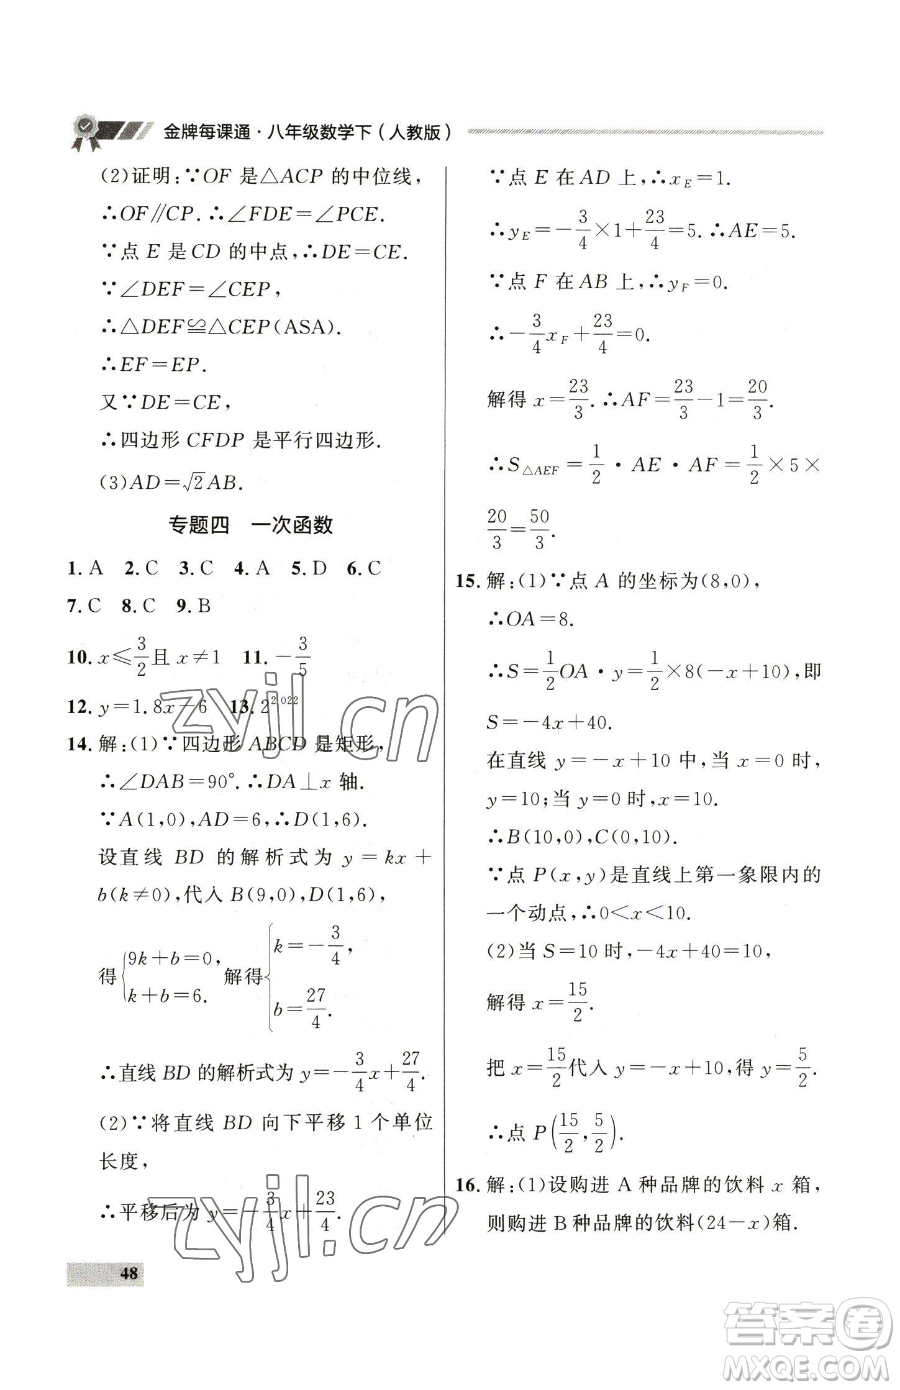 金牌每课通·八年级数学下(人教版)
(2)证明:∵OF 是△ACP 的中位线,
∴OF∥CP.∴∠FDE=∠PCE.
∵点 E 是 CD 的中点,∴DE=CE.
∵∠DEF=∠CEP,
∴△DEF≌△CEP(ASA).
∴EF=EP.
又∵DE=CE,
∴四边形 CFDP 是平行四边形.
(3)AD=√2AB.
专题四 一次函数
1. A 2. C 3. C 4. A 5. D 6. C
7. C 8. C 9. B
10. x≤3/2且 x≠1 11. -3/5
12. y=1.8x-6 13. 2^2022
14. 解:(1)∵四边形 ABCD 是矩形,
∴∠DAB=90°.∴DA⊥x 轴.
∵A(1,0),AD=6,∴D(1,6).
设直线 BD 的解析式为 y=kx+
b(k≠0),代入 B(9,0),D(1,6),
得{9k+b=0, k+b=6. 解得{k=-3/4, b=27/4.
∴直线 BD 的解析式为 y=-3/4x+27/4.
(2)∵将直线 BD 向下平移 1 个单位
长度,
∴平移后为 y=-3/4x+23/4.
48
∵点 E 在 AD 上,∴x_E=1.
∴y_E=-3/4×1+23/4=5.∴AE=5.
∵点 F 在 AB 上,∴y_F=0.
∴-3/4x_F+23/4=0.
解得 x=23/3.∴AF=23/3-1=20/3.
∴S△AEF=1/2·AE·AF=1/2×5×
20/3=50/3.
15. 解:(1)∵点 A 的坐标为(8,0),
∴OA=8.
∴S=1/2OA·y=1/2×8(-x+10),即
S=-4x+40.
在直线 y=-x+10 中,当 x=0 时,
y=10;当 y=0 时,x=10.
∴B(10,0),C(0,10).
∵点 P(x,y)是直线上第一象限内的
一个动点,∴0<x<10.
(2)当 S=10 时,-4x+40=10,
解得 x=15/2.
把 x=15/2代入 y=-x+10,得 y=5/2.
∴点 P(15/2,5/2).
16. 解:(1)设购进 A 种品牌的饮料 x 箱,
则购进 B 种品牌的饮料(24-x)箱.
zyjl.cn
zyjl.cn
答案圈
MXQE.COM